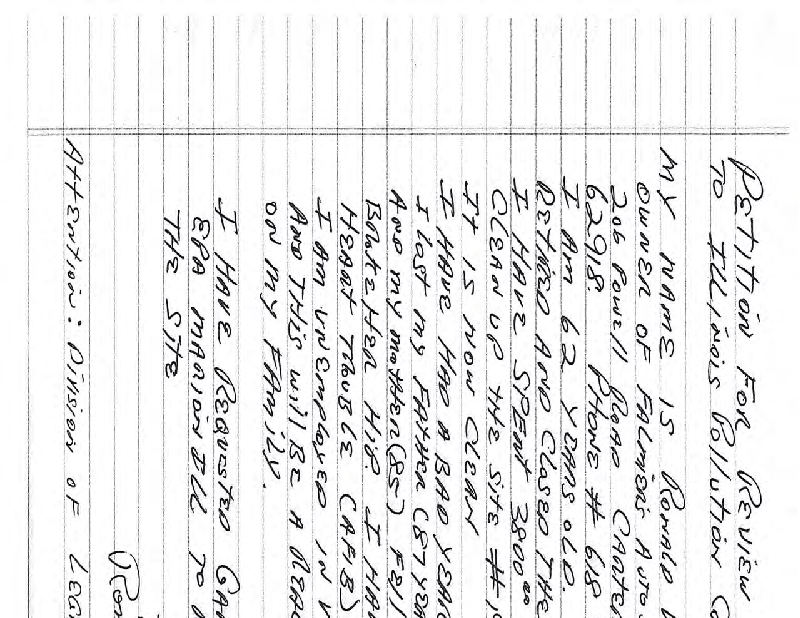 PETITION FOR REVIEW
TO ILLINOIS POLLUTION
MY NAME IS RONALD
OWNER OF FALMERS AUTO
206 POWELL ROAD CARTER
62918. PHONE # 618
I AM 62 YEARS OLD.
RETIRED AND CLOSED THE
I HAVE SPENT 3800.00
CLEAN UP THE SITE #
IT IS NOW CLEAN
I HAVE HAD A BAD YEAR
I lost my FATHER (87 YEA
AND my mother (85) FELL
BROKE HER HIP. I HA
HEART TROUBLE (AFIB)
I AM UNEMPLOYED IN
AND THIS will BE A
ON MY FAMILY.
I HAVE REQUESTED
EPA MARION ILL TO
THE SITE
RON
Attention: Division of LEG